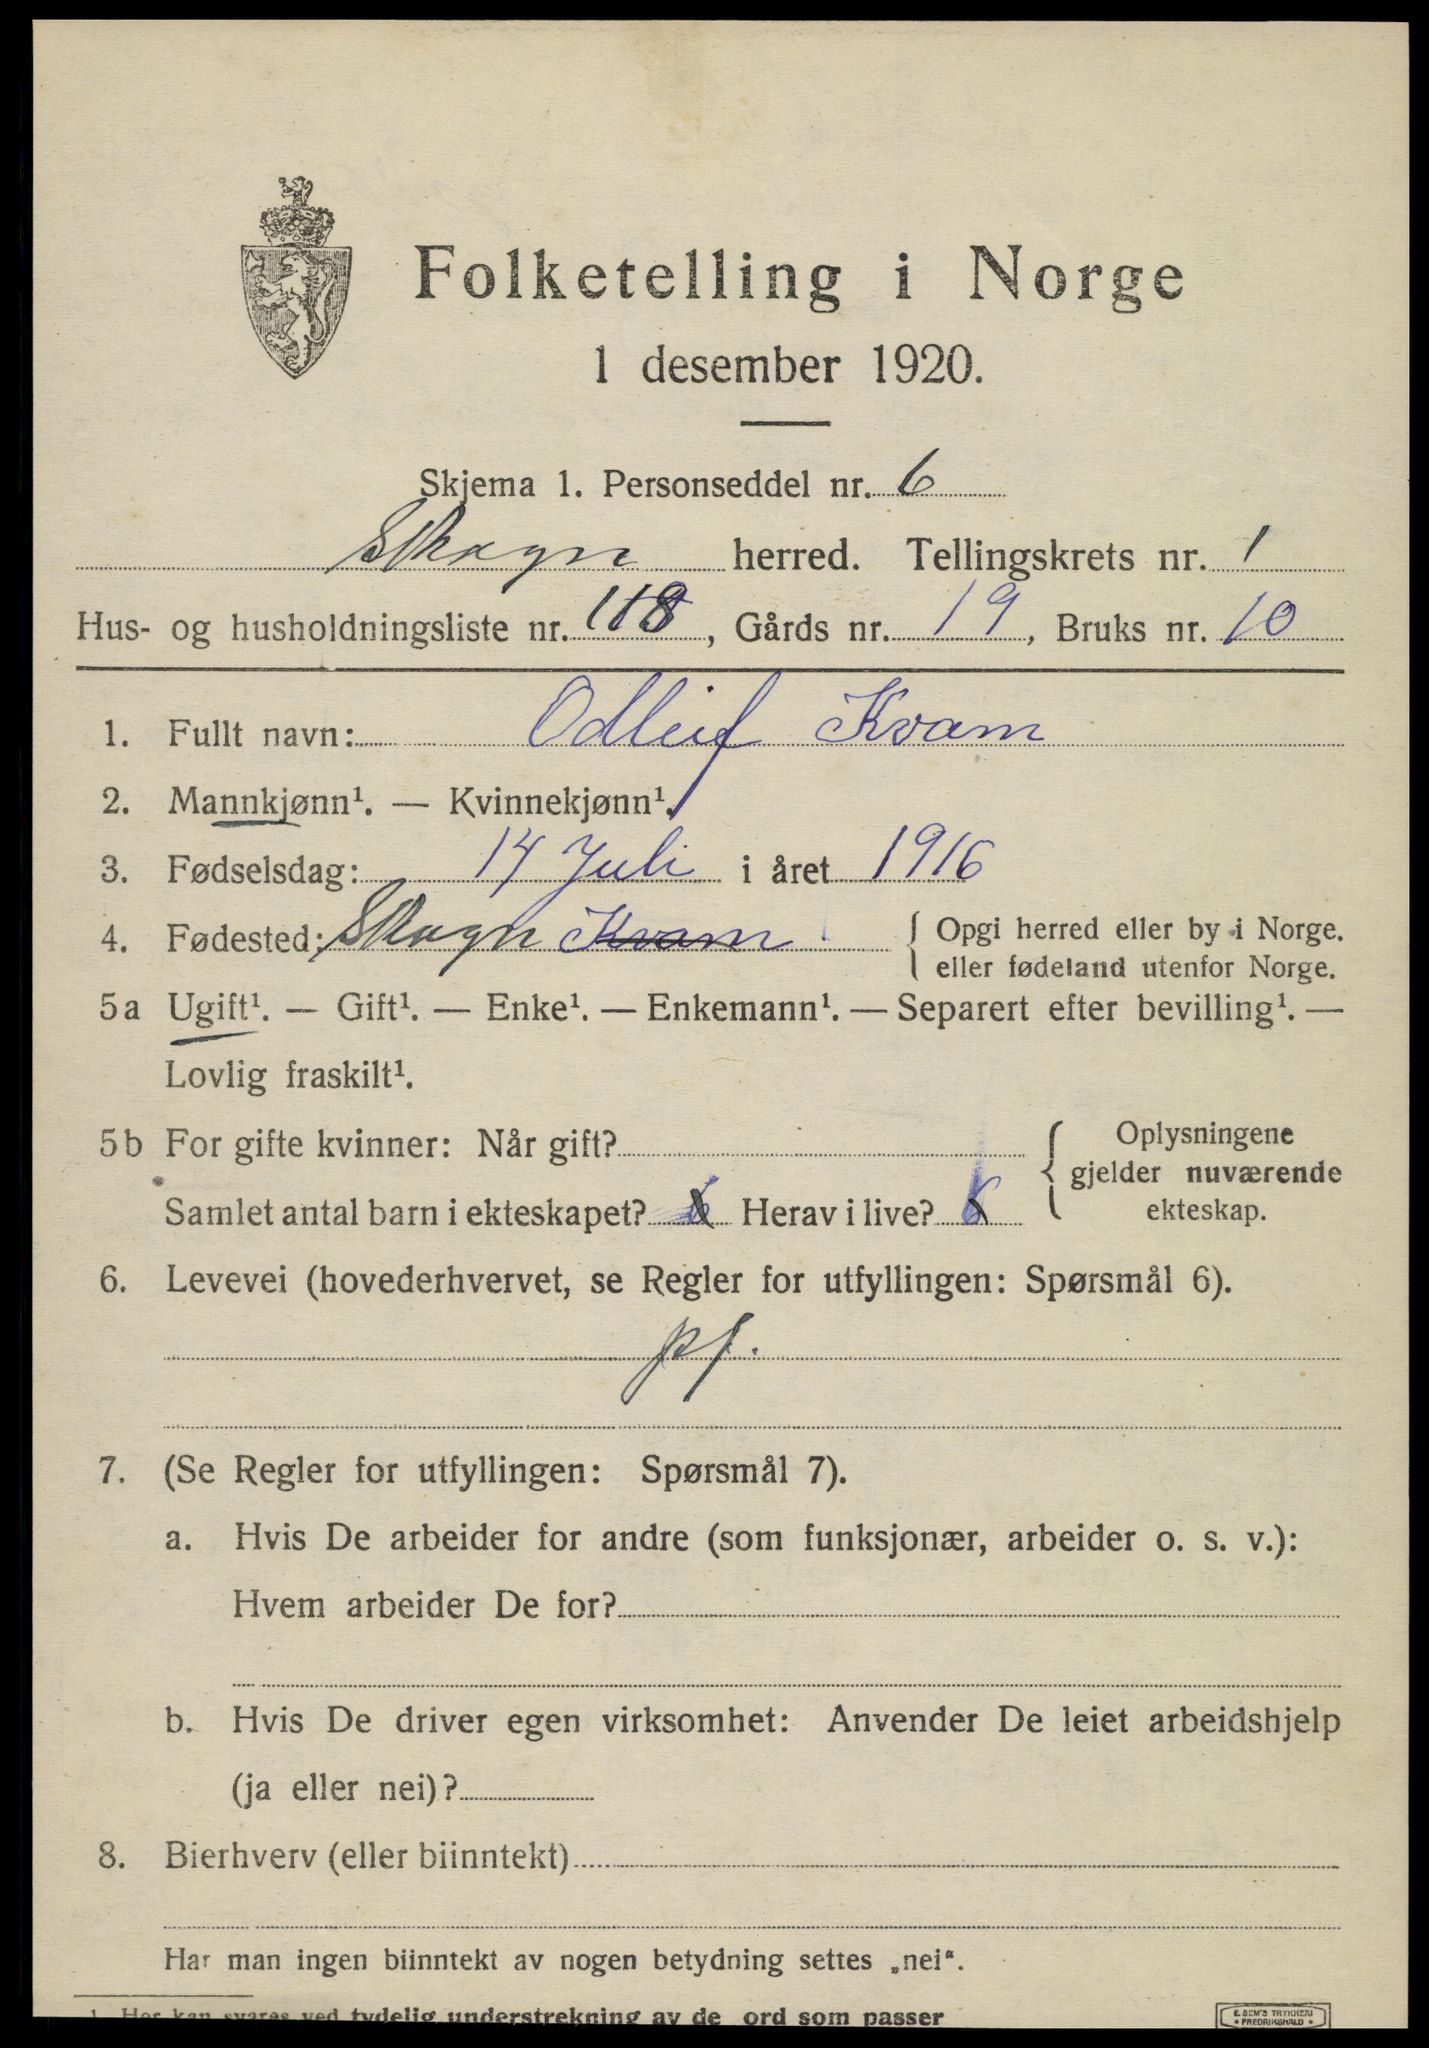 Folketelling i Norge
1 desember 1920.
Skjema 1. Personseddel nr. 6
Skogn herred. Tellingskrets nr. 1
Hus- og husholdningsliste nr. 118, Gårds nr. 19, Bruks nr. 10
1. Fullt navn: Odleif Kvam
2. Mannkjønn¹. — Kvinnekjønn¹.
3. Fødselsdag: 14 Juli i året 1916
4. Fødested: Skogn Kvam { Opgi herred eller by i Norge.
eller fødeland utenfor Norge.
5a Ugift¹. — Gift¹. — Enke¹. — Enkemann¹. — Separert efter bevilling¹. —
Lovlig fraskilt¹.
5b For gifte kvinner: Når gift? { Oplysningene
gjelder nuværende
Samlet antal barn i ekteskapet? 6 Herav i live? 6 ekteskap.
6. Levevei (hovederhvervet, se Regler for utfyllingen: Spørsmål 6).
pf.
7. (Se Regler for utfyllingen: Spørsmål 7).
a. Hvis De arbeider for andre (som funksjonær, arbeider o. s. v.):
Hvem arbeider De for?
b. Hvis De driver egen virksomhet: Anvender De leiet arbeidshjelp
(ja eller nei)?
8. Bierhverv (eller biinntekt)
Har man ingen biinntekt av nogen betydning settes „nei“.
1 Her kan svares ved tydelig understrekning av de ord som passer
E. SEM'S TRYKKERI
• FREDRIKSHALD •